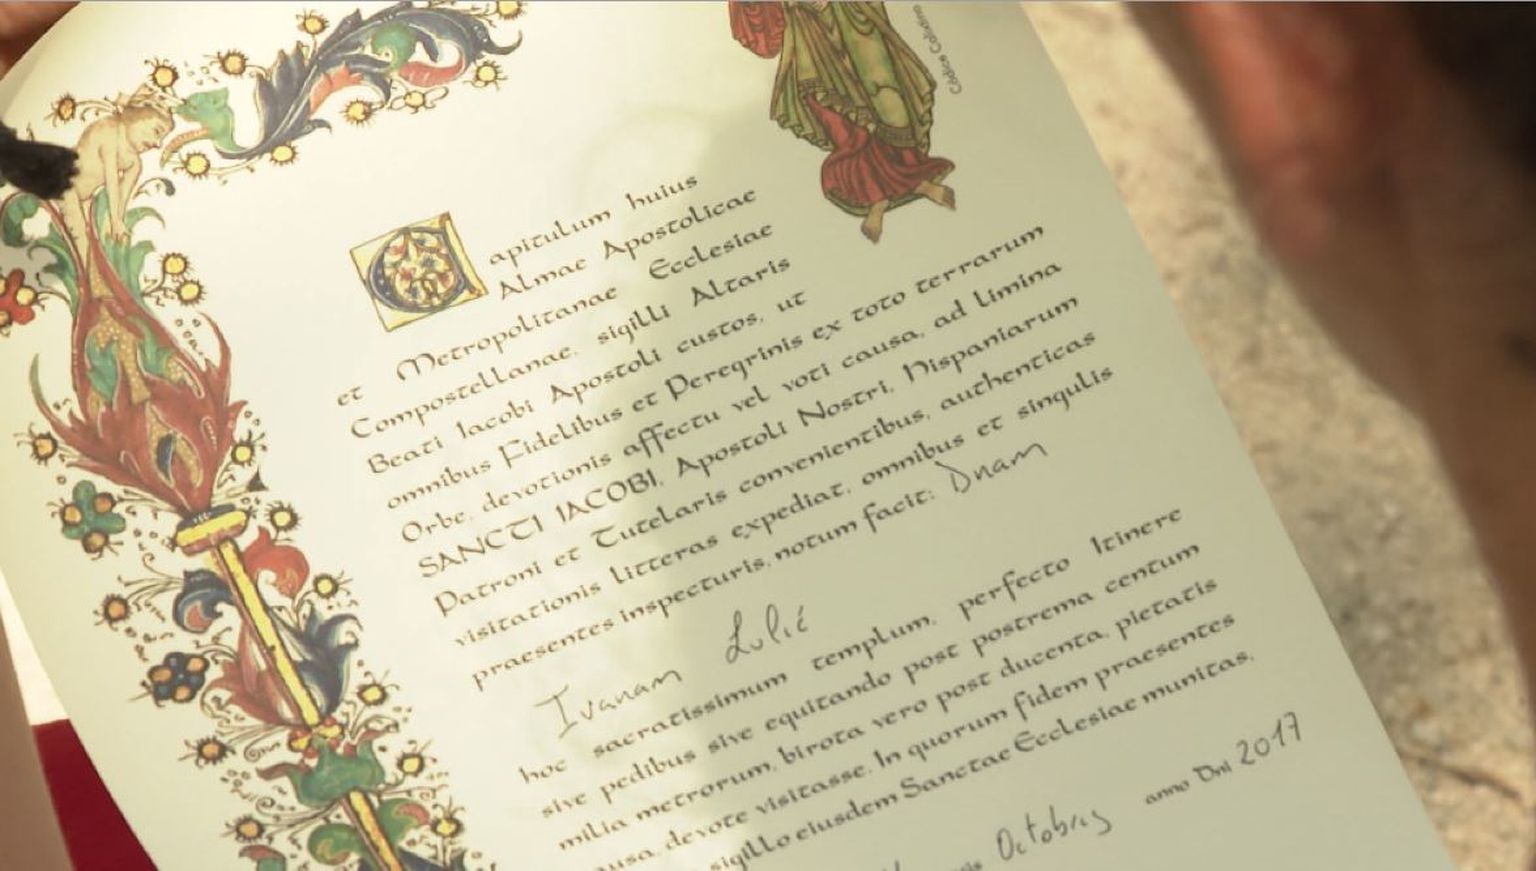 Códice Calixtino
Capitulum huius
Almae Apostolicae
et Metropolitanae Ecclesiae
Compostellanae, sigilli Altaris
Beati Iacobi Apostoli custos, ut
omnibus Fidelibus et Peregrinis ex toto terrarum
Orbe, devotionis affectu vel voti causa, ad limina
SANCTI IACOBI, Apostoli Nostri, Hispaniarum
Patroni et Tutelaris convenientibus, authenticas
visitationis litteras expediat, omnibus et singulis
praesentes inspecturis, notum facit: Dnam
Ivanam Lulić
hoc sacratissimum templum, perfecto Itinere
sive pedibus sive equitando post postrema centum
milia metrorum, birota vero post ducenta, pietatis
causa, devote visitasse. In quorum fidem praesentes
sigillo eiusdem Sanctae Ecclesiae munitas,
Octobris anno Dni 2017